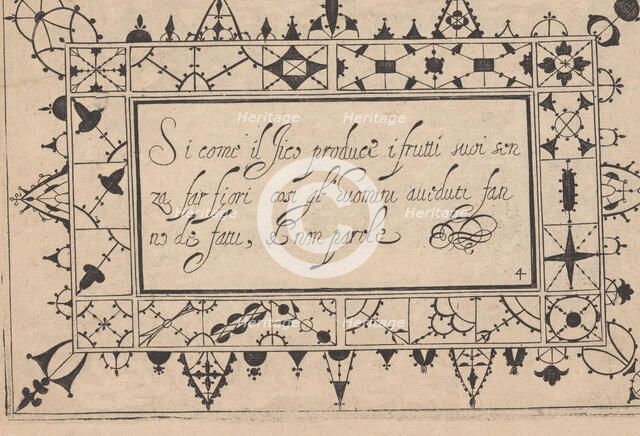 Si come il fico produce i frutti suoi sen
za far fiori cosi gl'huomini aueduti fan
no de fatti, et non parole
4
Heritage
Heritage
Heritage
Heritage
Heritage
Heritage